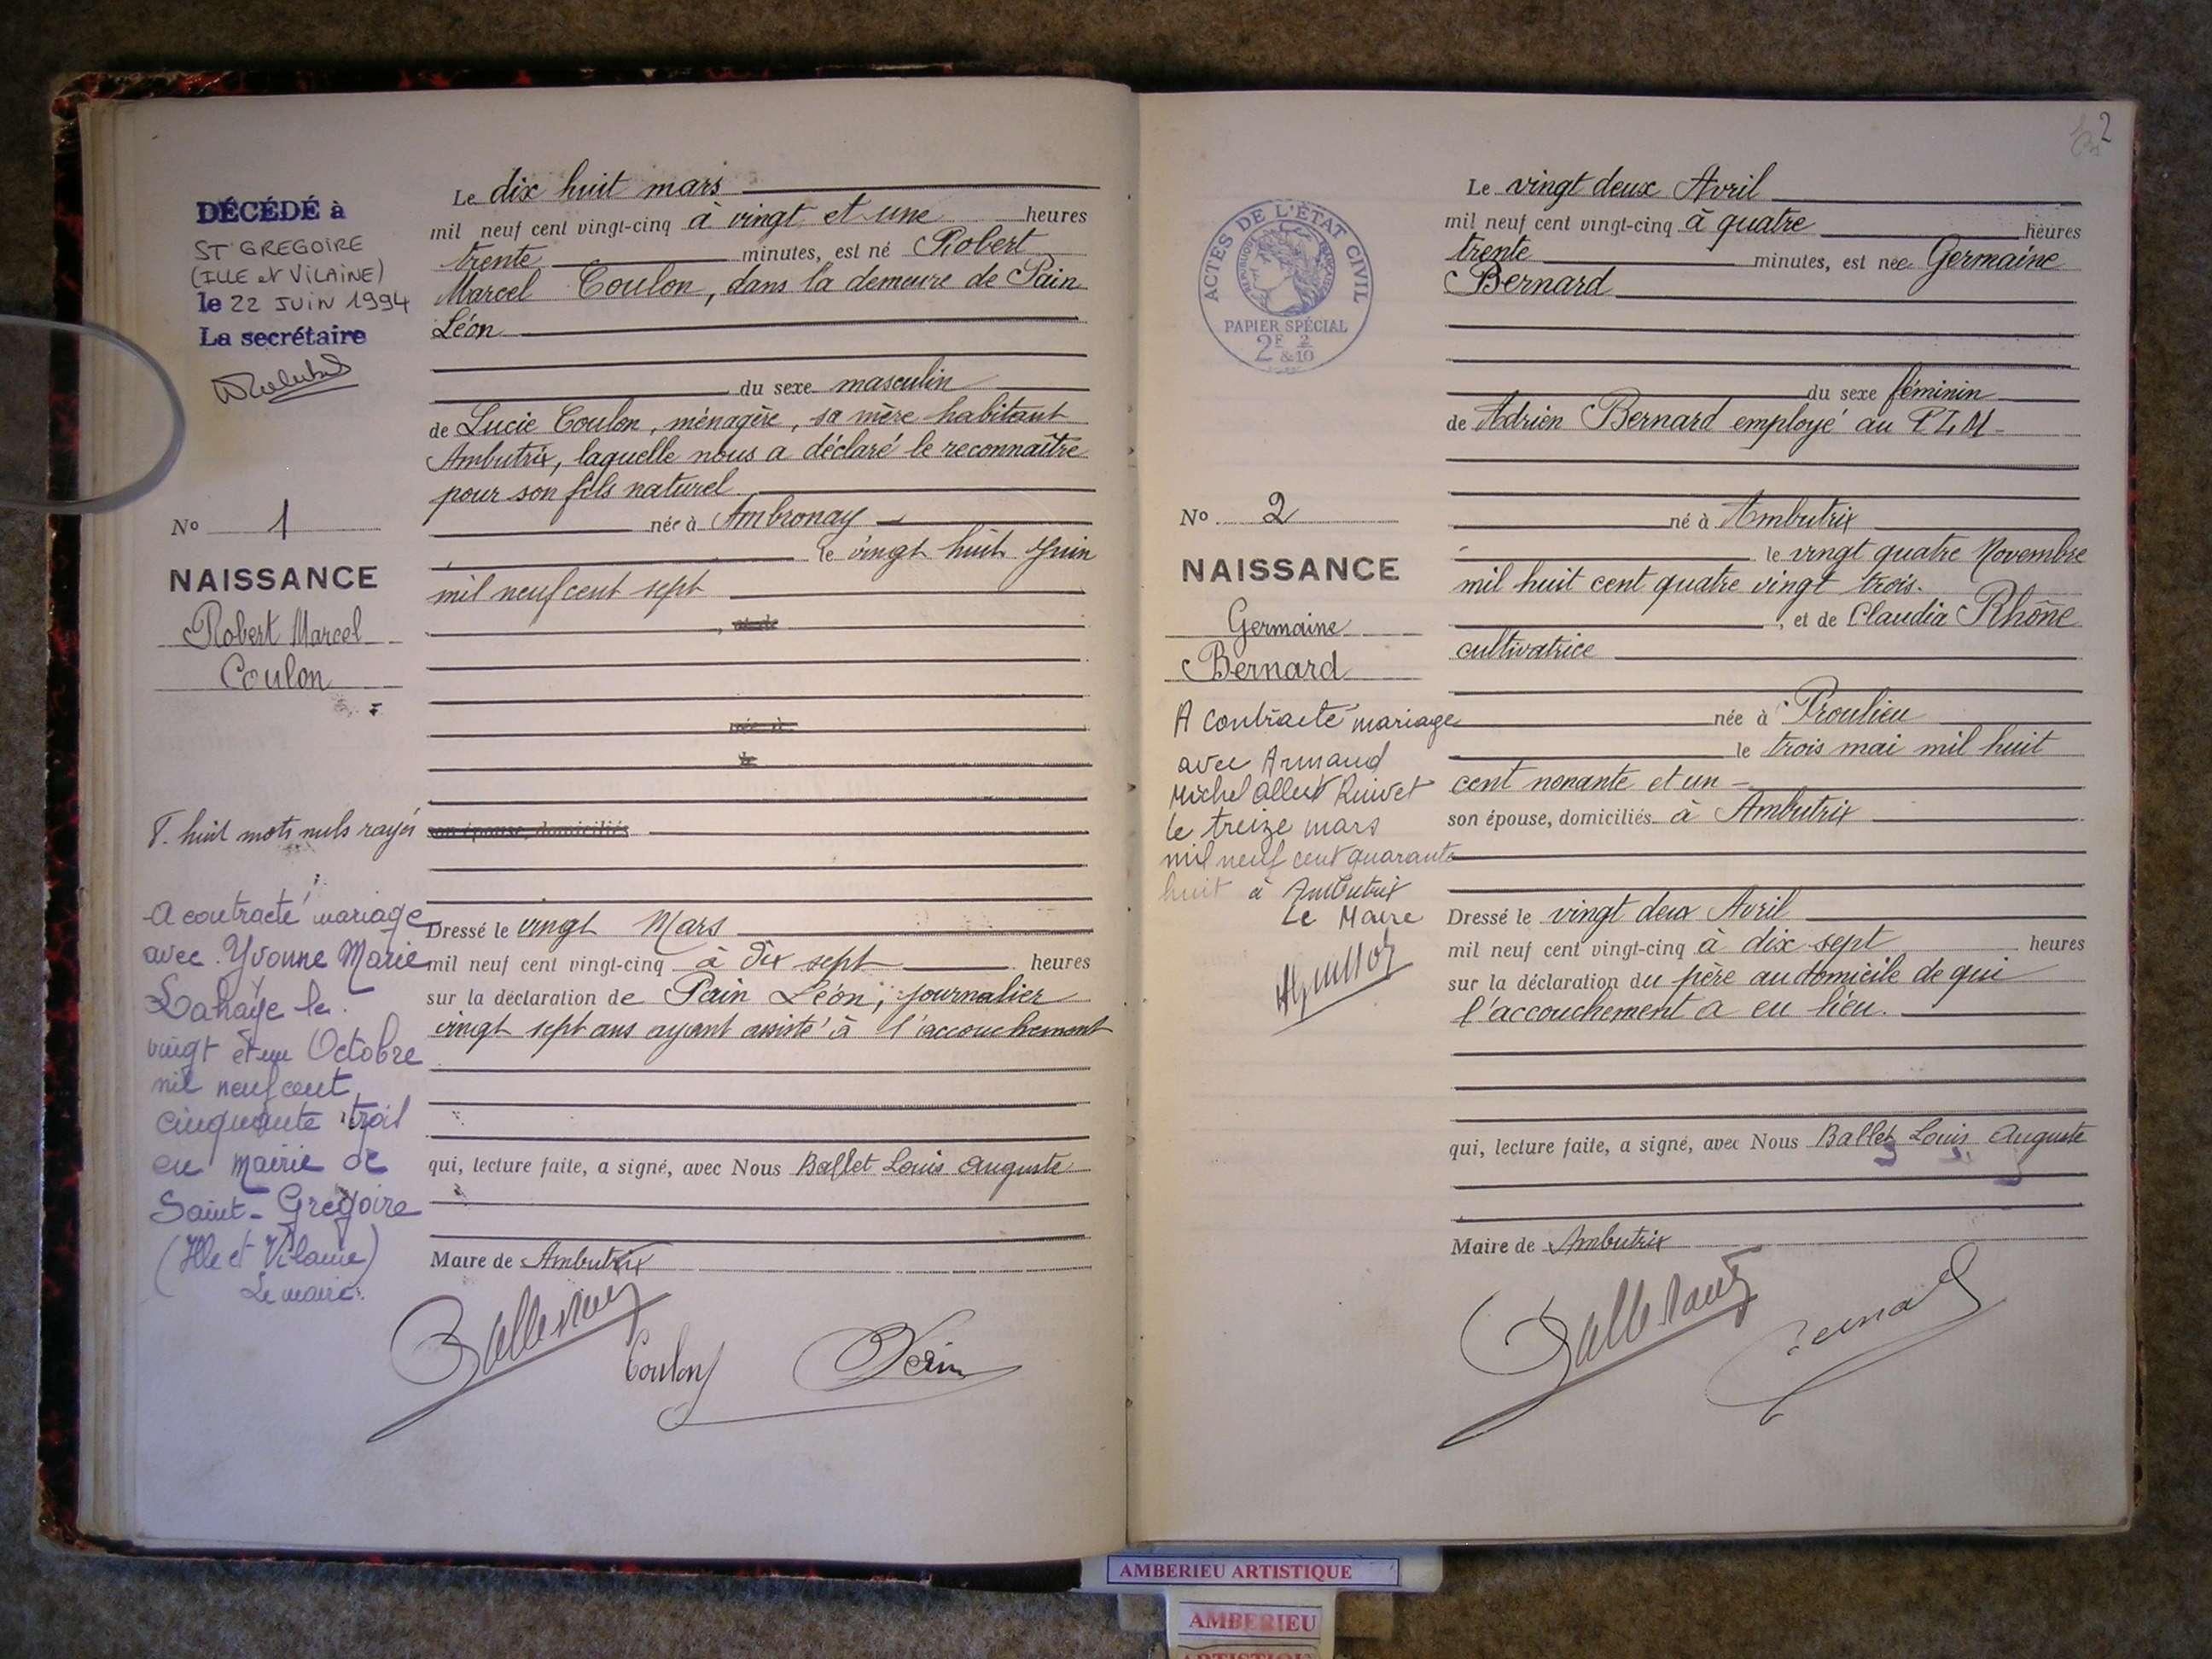 DÉCÉDÉ à
ST GREGOIRE
(ILLE et VILAINE)
le 22 JUIN 1994
La secrétaire
No 1
NAISSANCE
Robert Marcel
Coulon
T. huit mots nuls rayés
A contracté mariage
avec Yvonne Marie
Lahaye le
vingt et un Octobre
mil neuf cent
cinquante trois
en mairie de
Saint-Grégoire
(Ille et Vilaine)
Le maire.
Le dix huit mars
mil neuf cent vingt-cinq à vingt et une heures
trente minutes, est né Robert
Marcel Coulon, dans la demeure de Pain
Léon
du sexe masculin
de Lucie Coulon, ménagère, sa mère habitant
Ambutrix, laquelle nous a déclaré le reconnaître
pour son fils naturel
née à Ambronay
le vingt huit Juin
mil neuf cent sept
, et de
née à
le
son épouse, domiciliés
Dressé le vingt Mars
mil neuf cent vingt-cinq à dix sept heures
sur la déclaration de Pain Léon, journalier
vingt sept ans ayant assisté à l'accouchement
qui, lecture faite, a signé, avec Nous Ballet Louis Auguste
Maire de Ambutrix
Coulon
2
ACTES DE L'ÉTAT CIVIL
PAPIER SPÉCIAL
2F 2
&10
No 2
NAISSANCE
Germaine
Bernard
A contracté mariage
avec Armand
Michel Albert
le treize mars
mil neuf cent quarante
huit à Ambutrix
Le Maire
Le vingt deux Avril
mil neuf cent vingt-cinq à quatre heures
trente minutes, est née Germaine
Bernard
du sexe féminin
de Adrien Bernard employé au P.L.M.
né à Ambutrix
le vingt quatre Novembre
mil huit cent quatre vingt trois.
, et de Claudia Rhône
cultivatrice
née à Proulieu
le trois mai mil huit
cent nonante et un
son épouse, domiciliés à Ambutrix
Dressé le vingt deux Avril
mil neuf cent vingt-cinq à dix sept heures
sur la déclaration du père au domicile de qui
l'accouchement a eu lieu.
qui, lecture faite, a signé, avec Nous Ballet Louis Auguste
Maire de Ambutrix
AMBERIEU ARTISTIQUE
AMBERIEU
ARTISTIQU